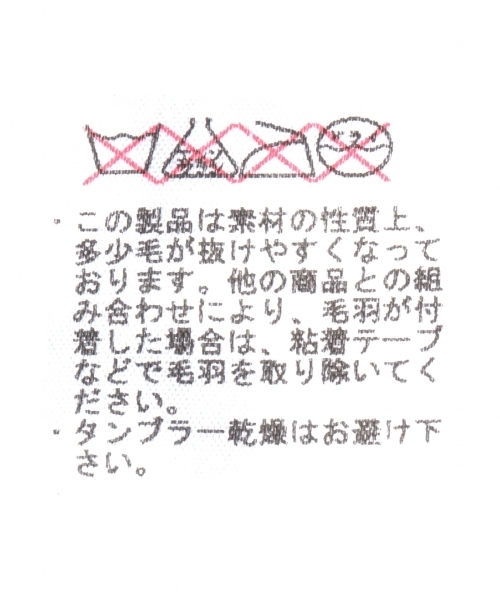 ・この製品は素材の性質上、
多少毛が抜けやすくなって
おります。他の商品との組
み合わせにより、毛羽が付
着した場合は、粘着テープ
などで毛羽を取り除いてく
ださい。
・タンブラー乾燥はお避け下
さい。